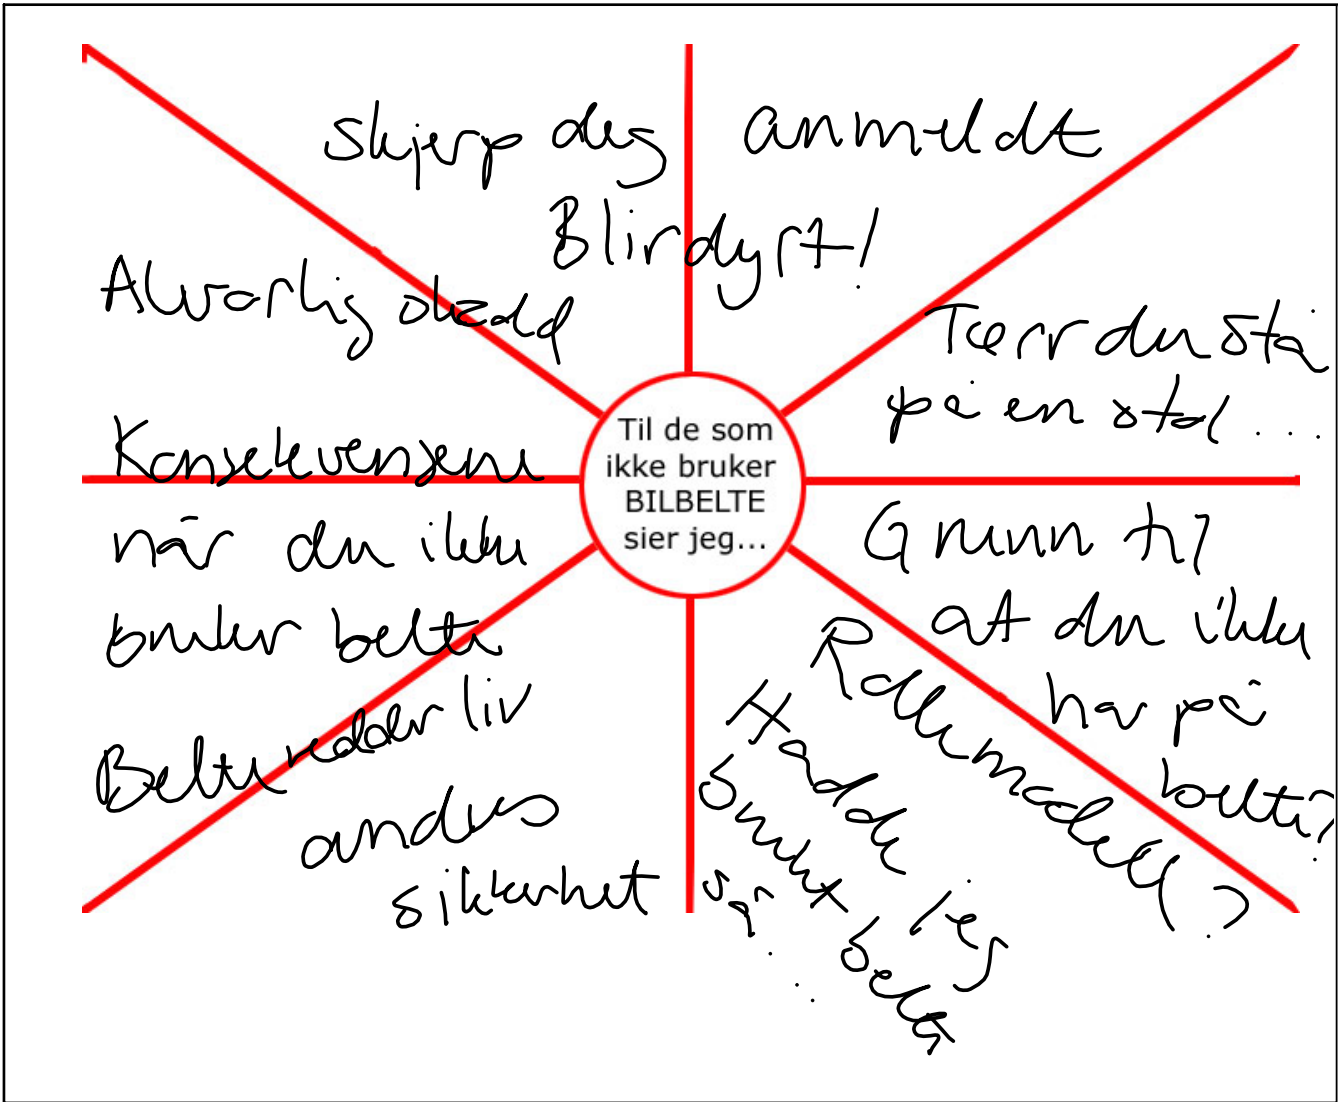 skjerp deg
anmeldt
Blir dyrt!
Alvorlig skadd
Tørr du stå
på en stol...
Konsekvensene
når du ikke
bruker belte
Til de som
ikke bruker
BILBELTE
sier jeg...
Grunn til
at du ikke
har på
belte?
Belte redder liv
andres
sikkerhet
Rollemodell?
Hadde jeg
brukt belte
så....